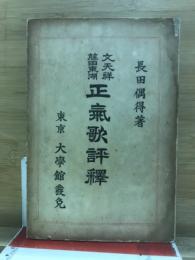 長田偶得著
文天祥
藤田東湖
正氣歌評釋
東京 大學館發兌